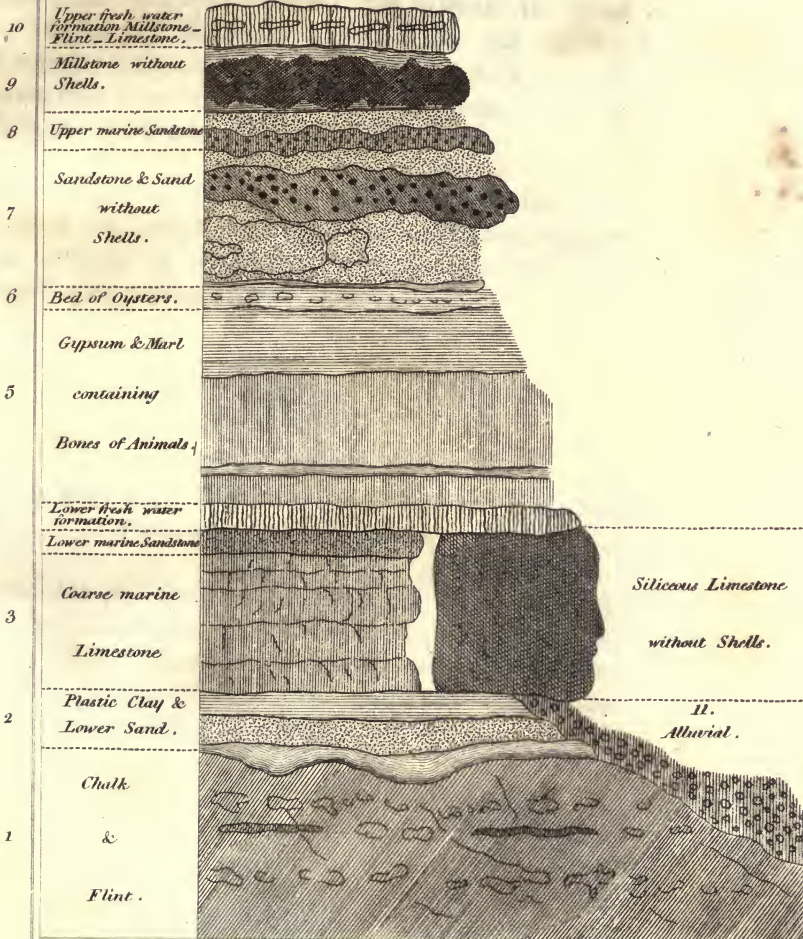 10
Upper fresh water
formation Millstone_
Flint_Limestone.
9
Millstone without
Shells.
8
Upper marine Sandstone
7
Sandstone & Sand
without
Shells.
6
Bed of Oysters.
5
Gypsum & Marl
containing
Bones of Animals.
Lower fresh water
formation.
Lower marine Sandstone
3
Coarse marine
Limestone
Siliceous Limestone
without Shells.
2
Plastic Clay &
Lower Sand.
11.
Alluvial.
1
Chalk
&
Flint.